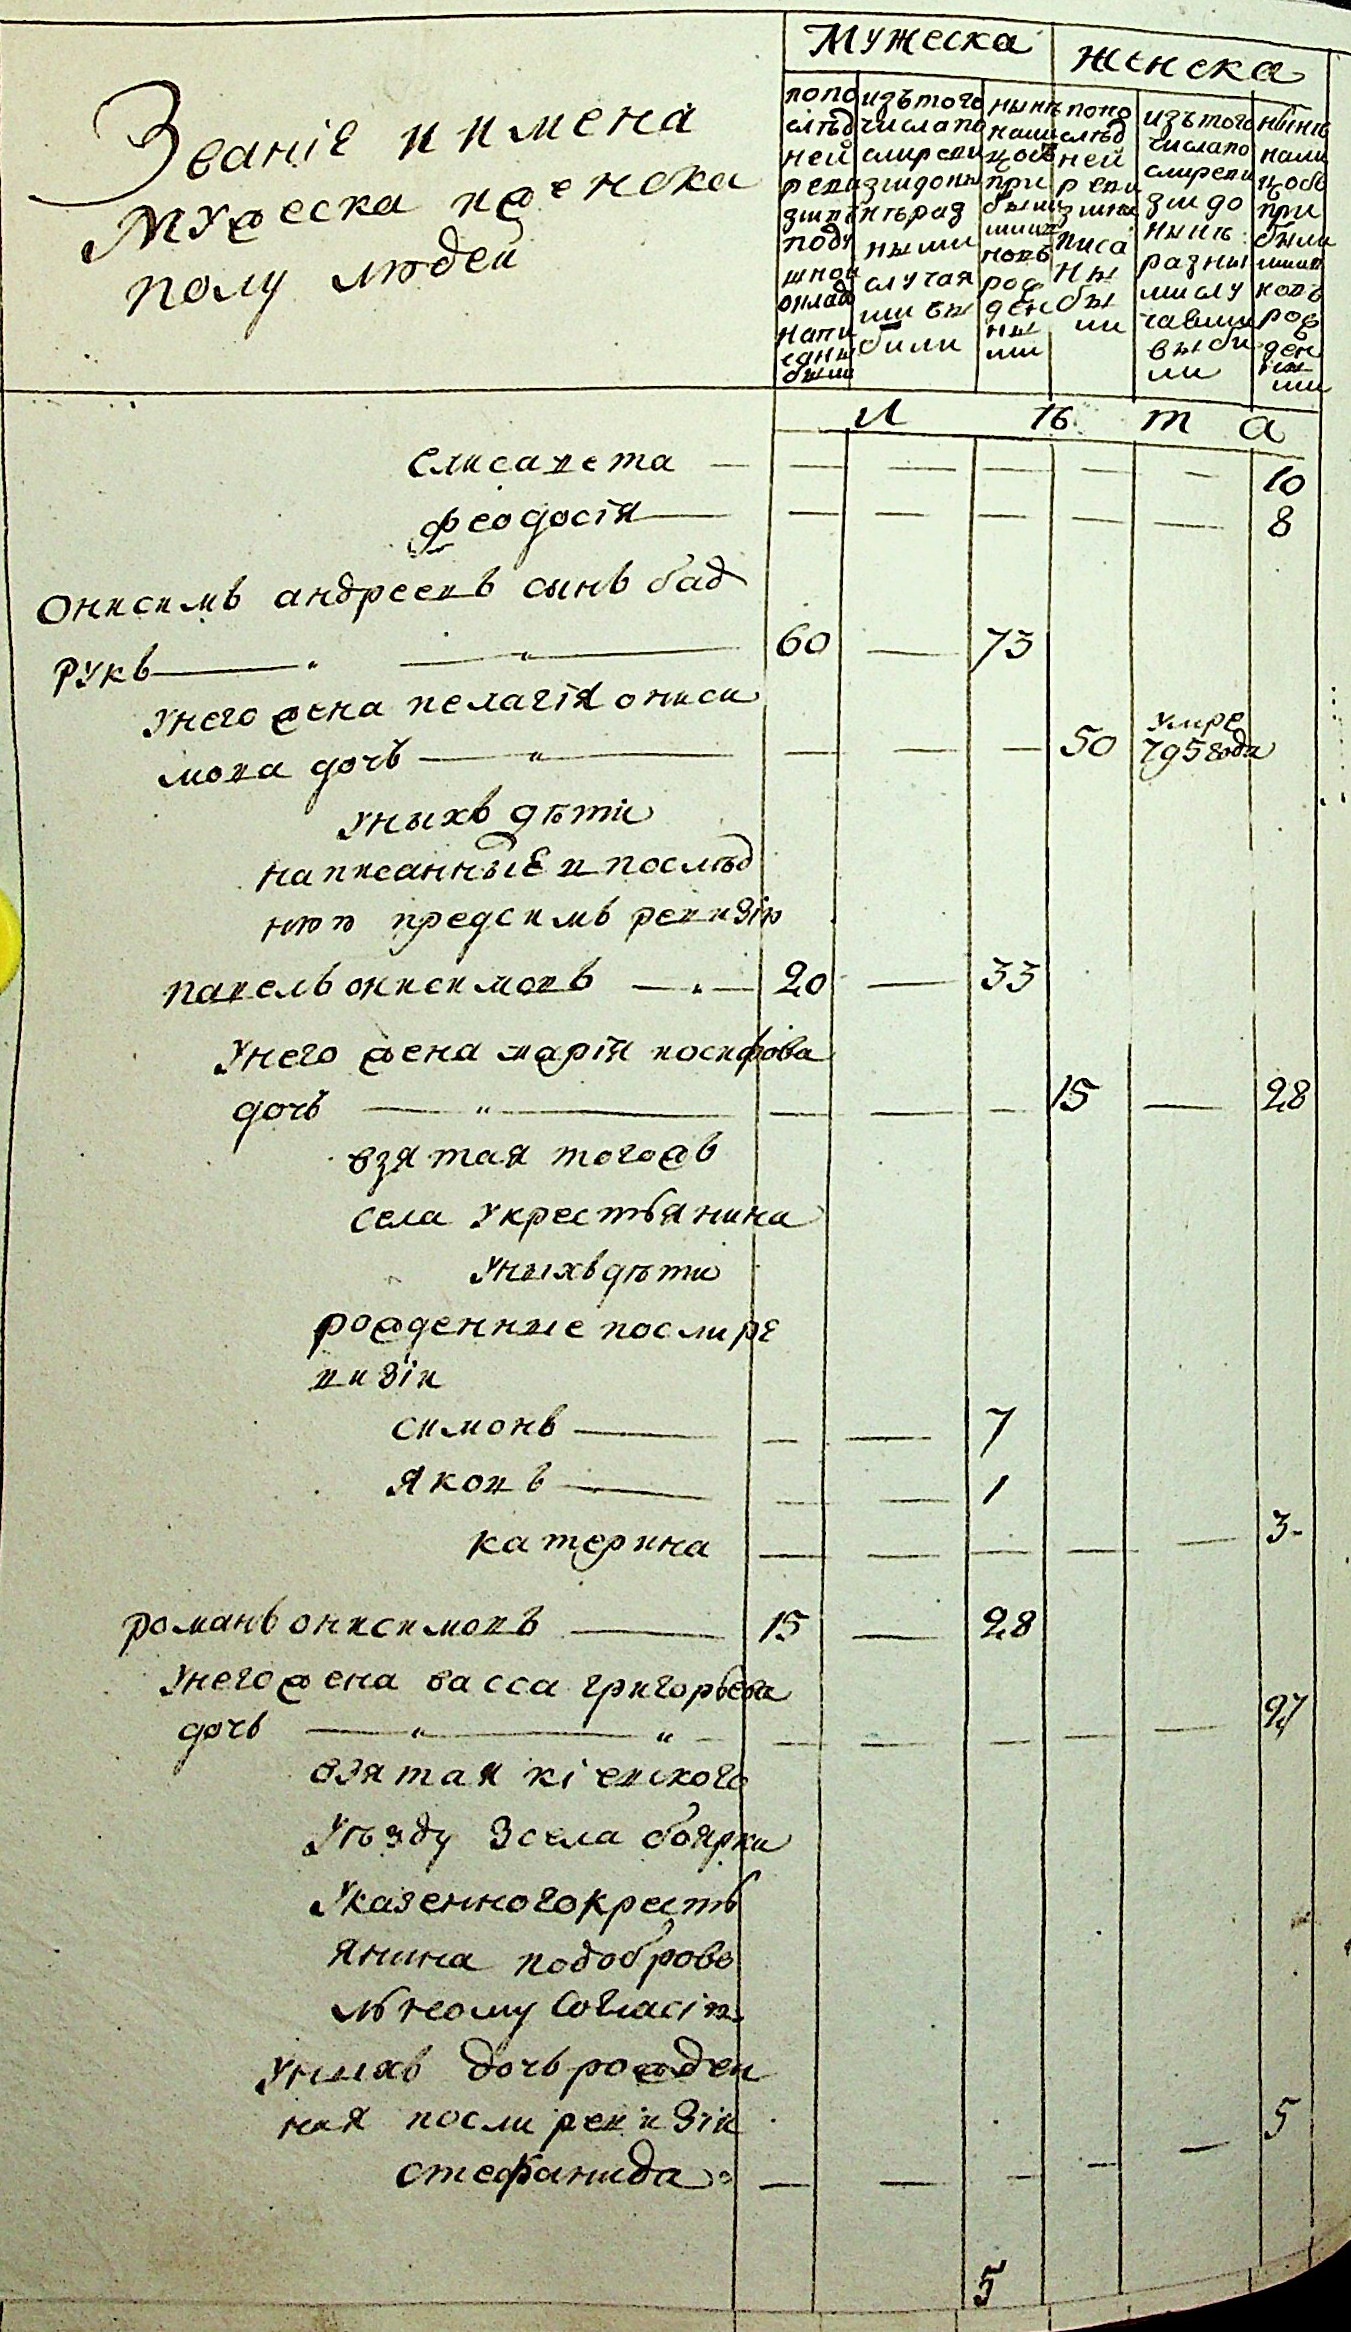 Званіе и имена
Мужеска и женска
полу людей
Мужеска
женска
попо
слѣд
ней
реви
зии п
поду
шной
оклад
напи
саны
были
изътого
числа по
слиреви
зии доны
нѣ раз
ными
случая
ми вы
били
нынѣ
нали
цо съ
при
былы
ми и
новъ
рож
ден
ны
ми
попо
слѣд
ней
реви
зии на
писа
ны
бы
ли
изътого
числапо
слиреви
зии до
нынѣ
разны
ми слу
чаями
выби
ли
нынѣ
нали
цо съ
при
были
ми и
новъ
рож
ден
ны
ми
л ѣ т а
елисавета — — — — — — 10
феодосія — — — — — — 8
Онисимъ андреевъ сынъ бад
рукъ — 60 — 73
Унего жена пелагія ониси
мова дочъ — — — — 50 умре 795 года
Уныхъ дѣти
написанныЕ в послѣд
нюю предсимъ ревизію
павелъ онисимовъ — 20 — 33
Унего жена марія иосифова
дочъ — — — — 15 — 28
взятая тогожъ
села Укрестьянина
Уныхъ дѣти
рожденные посли ре
визіи
симонъ — — — 7
Яковъ — — — 1
катерина — — — — — 3
романъ онисимовъ — 15 — 28
Унего жена васса григорьева
дочъ — — — — — — 27
взятая кіевского
Уѣзду Зсела боярки
Указенного кресть
янина подоброво
льному Согласію
Уныхъ дочь рожден
ная посли ревизіи
стефанида — — — — — 5
5